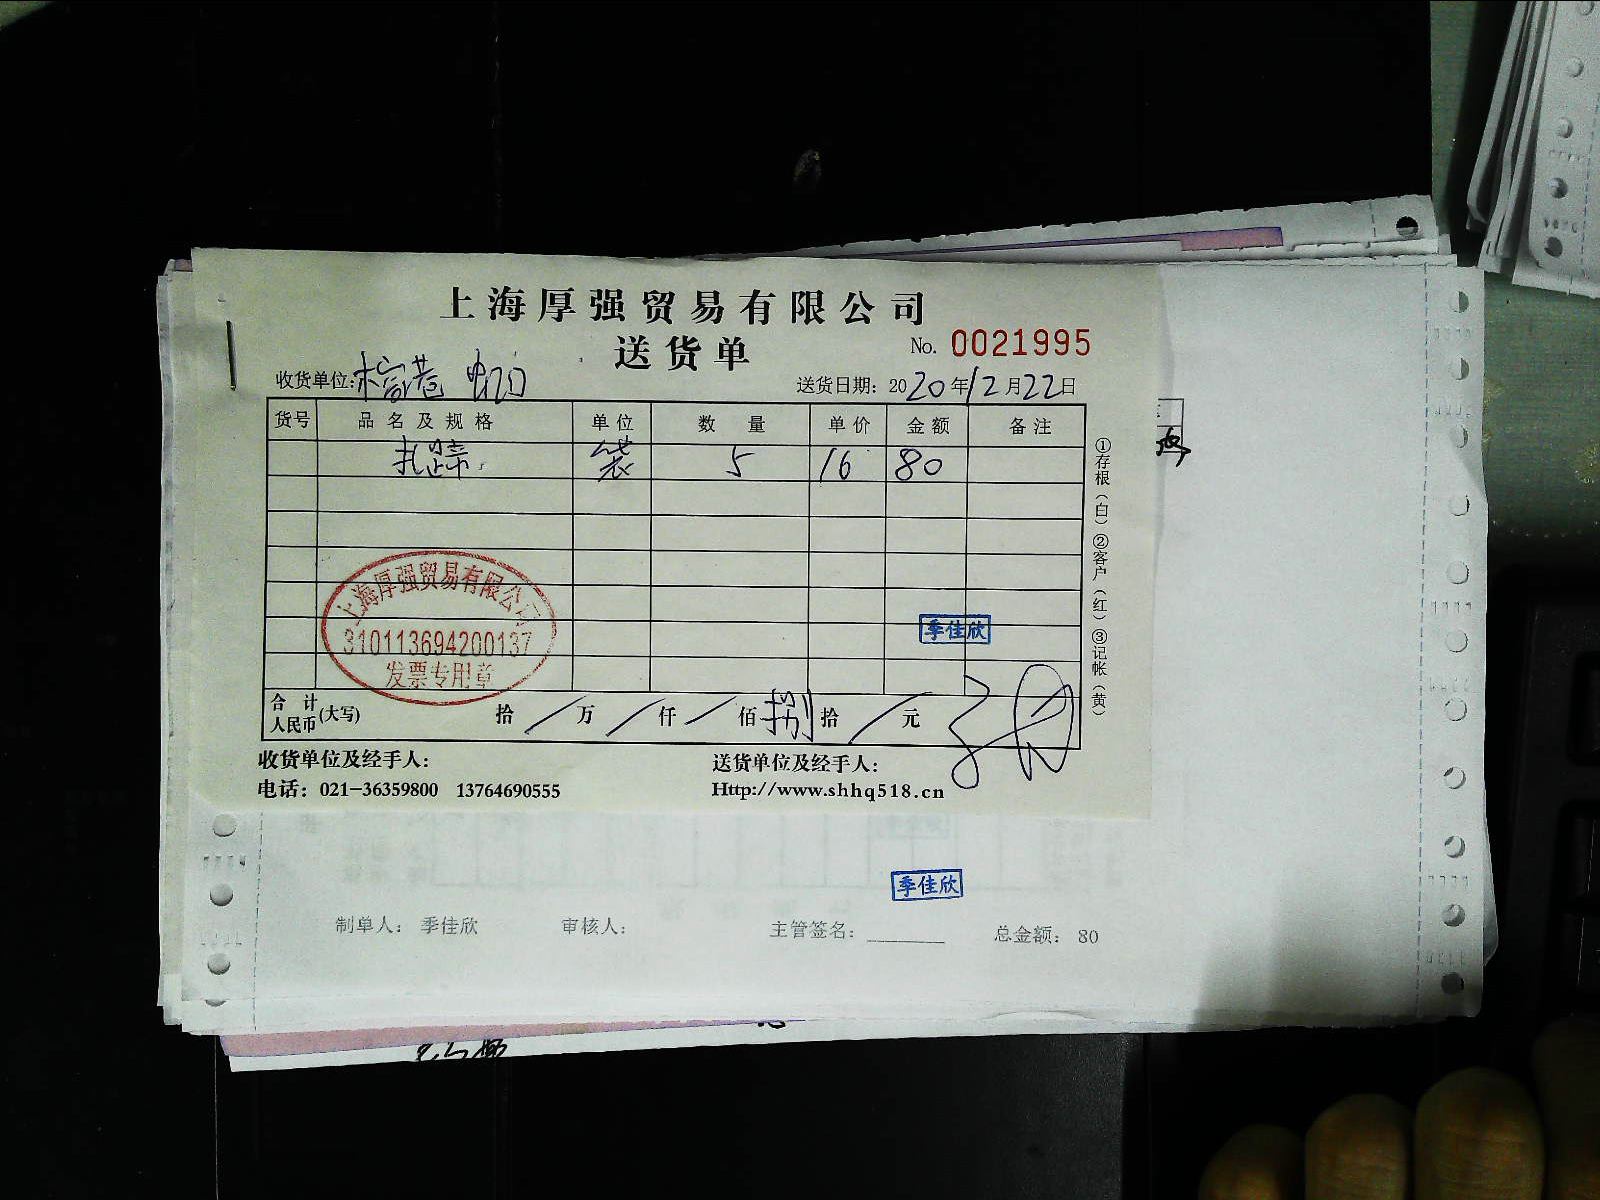 上海厚强贸易有限公司
送货单
No. 0021995
收货单位:
送货日期: 2020年12月22日
货号 品名及规格 单位 数量 单价 金额 备注
扎蹄 袋 5 16 80
①存根(白)②客户(红)③记帐(黄)
上海厚强贸易有限公司
310113694200137
发票专用章
季佳欣
合计人民币(大写) 拾 / 万 / 仟 / 佰 捌 拾 / 元
收货单位及经手人:
送货单位及经手人:
电话: 021-36359800 13764690555
Http://www.shhq518.cn
季佳欣
制单人: 季佳欣 审核人: 主管签名: ________ 总金额: 80